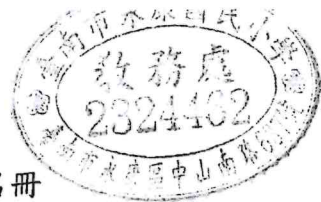 臺南市永康國民小學
教務處
2324462
臺南市永康區中山南路637號
名冊